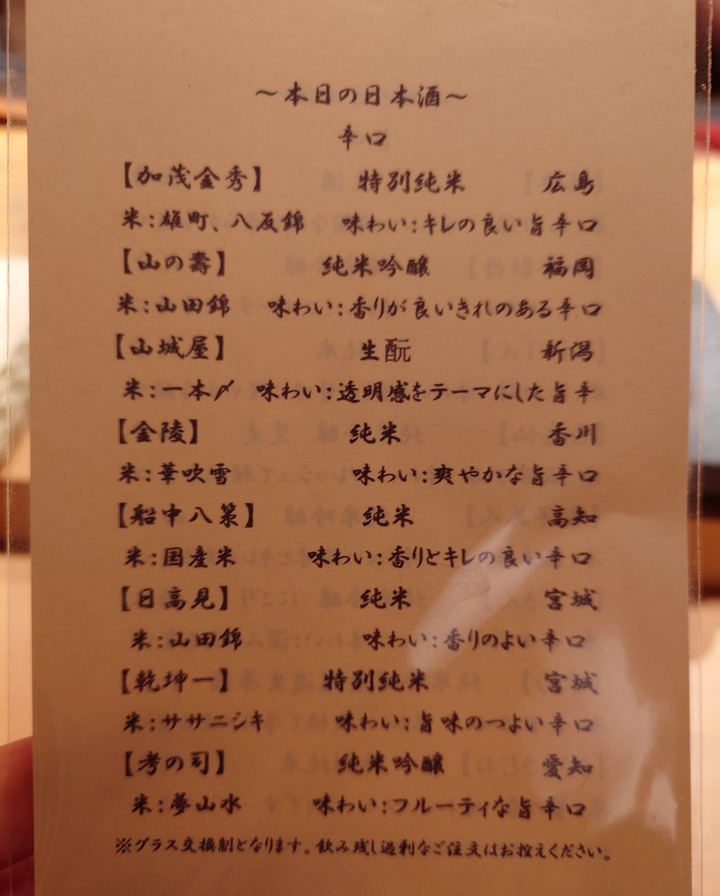 ～本日の日本酒～
辛口
【加茂金秀】 特別純米 広島
米：雄町、八反錦 味わい：キレの良い旨辛口
【山の壽】 純米吟醸 福岡
米：山田錦 味わい：香りが良いきれのある辛口
【山城屋】 生酛 新潟
米：一本〆 味わい：透明感をテーマにした旨辛
【金陵】 純米 香川
米：華吹雪 味わい：爽やかな旨辛口
【船中八策】 純米 高知
米：国産米 味わい：香りとキレの良い辛口
【日高見】 純米 宮城
米：山田錦 味わい：香りのよい辛口
【乾坤一】 特別純米 宮城
米：ササニシキ 味わい：旨味のつよい辛口
【考の司】 純米吟醸 愛知
米：夢山水 味わい：フルーティな旨辛口
※グラス交換制となります。飲み残し過剰なご注文はお控えください。